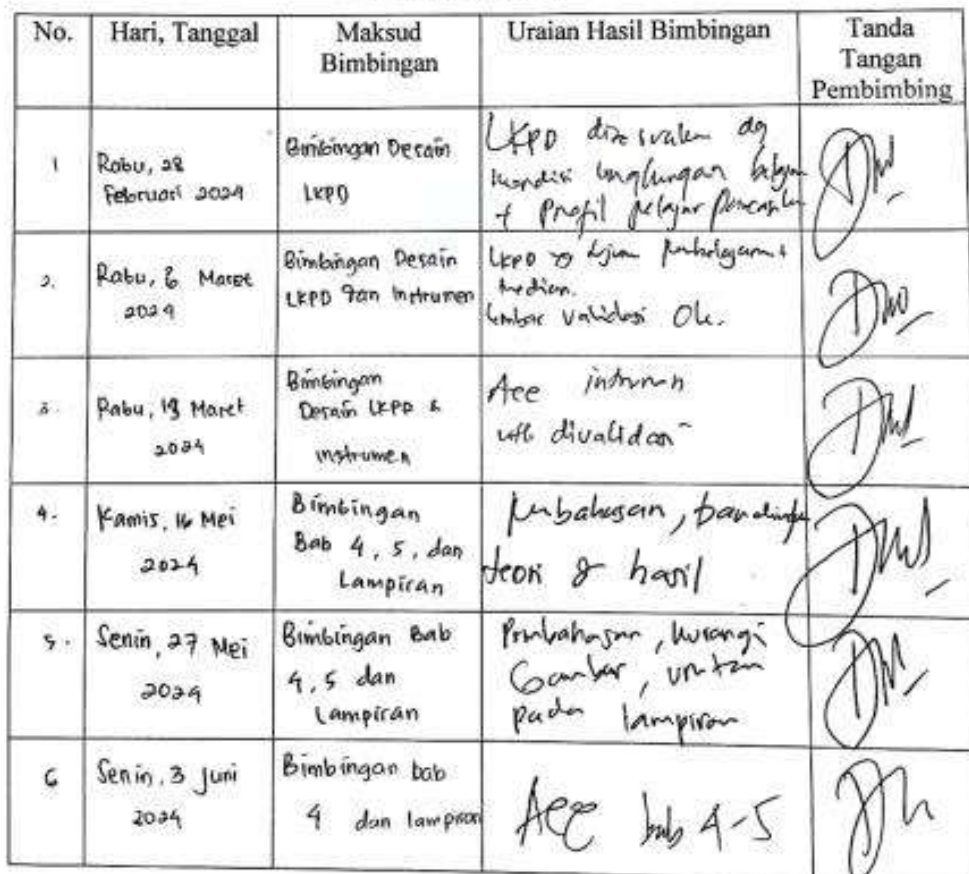 No.
Hari, Tanggal
Maksud
Bimbingan
Uraian Hasil Bimbingan
Tanda
Tangan
Pembimbing
1
Rabu, 28
Februari 2024
Bimbingan Desain
LKPD
LKPD dg
kondisi lingkungan belajar
+ Profil pelajar Pancasila
2.
Rabu, 6 Maret
2024
Bimbingan Desain
LKPD dan Instrumen
LKPD
lembar validasi Ok.
3.
Rabu, 13 Maret
2024
Bimbingan
Desain LKPD &
instrumen
Acc instrumen
utk divalidasi
4.
Kamis, 16 Mei
2024
Bimbingan
Bab 4, 5, dan
Lampiran
Pembahasan, bandingkan
teori & hasil
5.
Senin, 27 Mei
2024
Bimbingan Bab
4, 5 dan
Lampiran
Pembahasan, kurangi
Gambar, urutan
pada lampiran
6
Senin, 3 Juni
2024
Bimbingan bab
4 dan lampiran
Acc bab 4-5